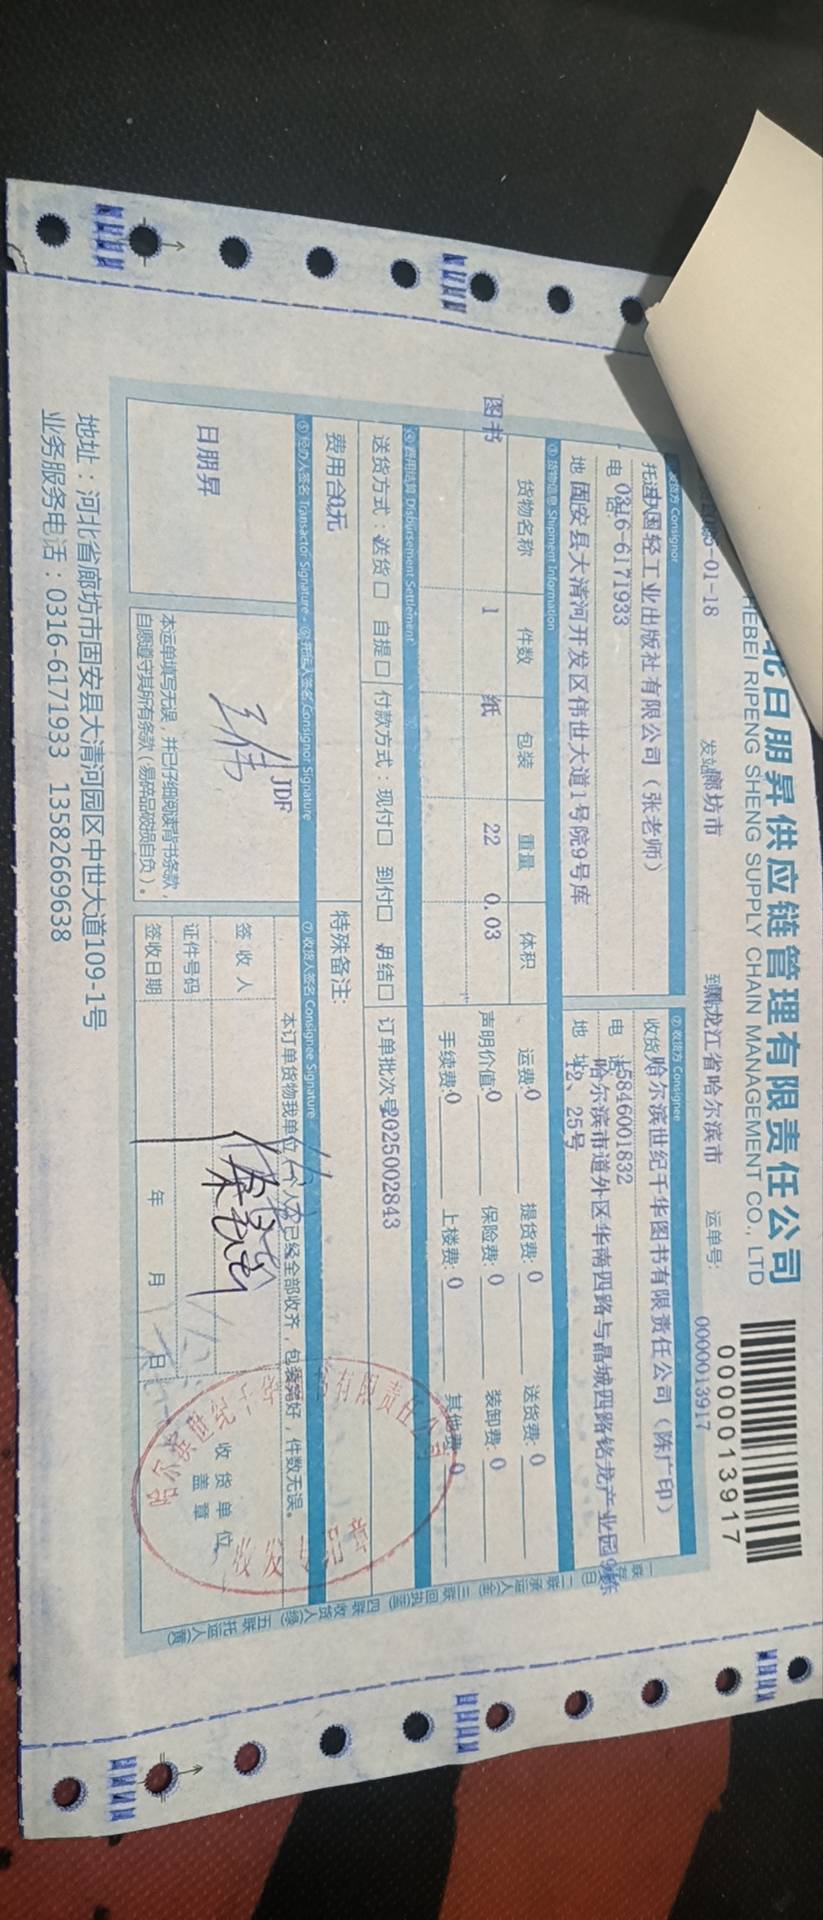 北日朋昇供应链管理有限责任公司
HEBEI RIPENG SHENG SUPPLY CHAIN MANAGEMENT CO., LTD
0000013917
-01-18 发站廊坊市 到黑龙江省哈尔滨市 运单号: 0000013917
发货方 Consignor
② 收货方 Consignee
国轻工业出版社有限公司（张老师）
收货哈尔滨世纪千华图书有限责任公司（陈广印）
电 0316-6171933
电 5846001832
地 固安县大清河开发区伟世大道1号院9号库
地 哈尔滨市道外区华南四路与晶城四路铭龙产业园9栋
12、25号
③ 货物信息 Shipment Information
货物名称 件数 包装 重量 体积
图书 1 纸 22 0.03
运费:0 提货费: 0 送货费: 0
声明价值:0 保险费: 0 装卸费: 0
手续费:0 上楼费: 0 其他费: 0
④ 费用结算 Disbursement Settlement
送货方式：送货□ 自提□ 付款方式：现付□ 到付□ 月结□ 订单批次号2025002843
费用合0元
特殊备注:
⑤ 经办人签名 Transactor Signature
⑥ 托运人签名 Consignor Signature
⑦ 收货人签名 Consignee Signature
日朋昇
JDF
王伟
本运单填写无误，并已仔细阅读背书条款，
自愿遵守其所有条款（易碎品破损自负）。
本订单货物我单位（个人）已经全部收齐，包装完好，件数无误。
签 收 人
证件号码
签收日期 年 月 日
收 货 单 位
盖 章
哈尔滨世纪千华图书有限责任公司
收发专用章
一联存 (白) 二联承运人(金) 三联回执(蓝) 四联收货人(绿) 五联托运人(黄)
地址：河北省廊坊市固安县大清河园区中世大道109-1号
业务服务电话：0316-6171933 13582669638